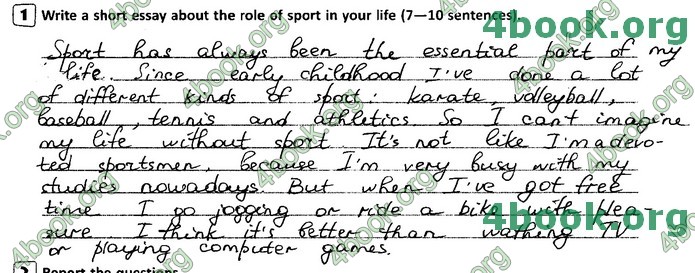 1 Write a short essay about the role of sport in your life (7—10 sentences).
4book.org
Sport has always been the essential part of my
life. Since early childhood I've done a lot
of different kinds of sport: karate, volleyball,
baseball, tennis and athletics. So I can't imagine
my life without sport. It's not like I'm a devo-
ted sportsmen, because I'm very busy with my
studies nowadays. But when I've got free
time I go jogging or ride a bike with plea-
sure I think it's better than wathing TV
or playing computer games.
4book.org
2 Report the questions